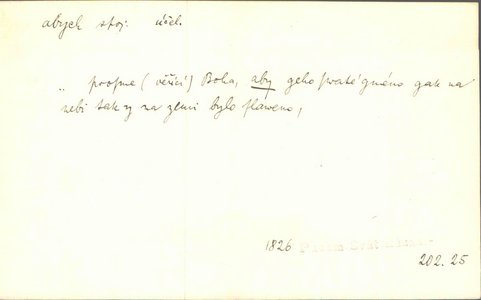 abych stoj. účel.
„ prosme (věřící) Boha, aby geho swaté gméno gak na
nebi tak y na zemi bylo slaweno,
1826
202. 25